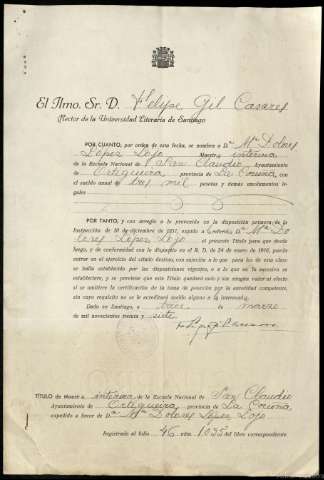 El Ilmo. Sr. D. Felipe Gil Casares
Rector de la Universidad Literaria de Santiago
POR CUANTO, por orden de esta fecha, se nombra a D.ª Mª Dolores
López Lojo Maestra interina
de la Escuela Nacional de San Claudio Ayuntamiento
de Ortigueira provincia de La Coruña, con
el sueldo anual de tres mil pesetas y demás emolumentos le-
gales
POR TANTO, y con arreglo a lo prevenido en la disposición primera de la
Instrucción de 10 de diciembre de 1857, expido a D.ª Mª Do-
lores López Lojo el presente Título para que desde
luego, y de conformidad con lo dispuesto en el R. D. de 24 de enero de 1916, pueda
entrar en el ejercicio del citado destino, con sujeción a lo que para los de esta clase
se halla establecido por las disposiciones vigentes, o a lo que en lo sucesivo se
establezca, y se previene que este Título quedará nulo y sin ningún valor ni efecto
si se omitiere la certificación de la toma de posesión por la autoridad competente,
sin cuyo requisito no se le acreditará sueldo alguno a la interesada.
Dado en Santiago, a tres de marzo
de mil novecientos treinta y siete
TÍTULO de Maestra interina de la Escuela Nacional de San Claudio
Ayuntamiento de Ortigueira, provincia de La Coruña,
expedido a favor de D.ª Mª Dolores López Lojo
Registrado al folio 46 núm. 1035 del libro correspondiente